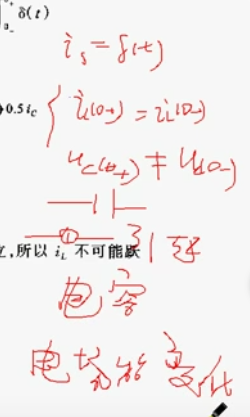 δ(t)
i_s = δ(t)
0.5 i_C
i_L(0+) = i_L(0-)
u_C(0+) ≠ u_C(0-)
,所以 i_L 不可能跃
引起
电容
电场能变化